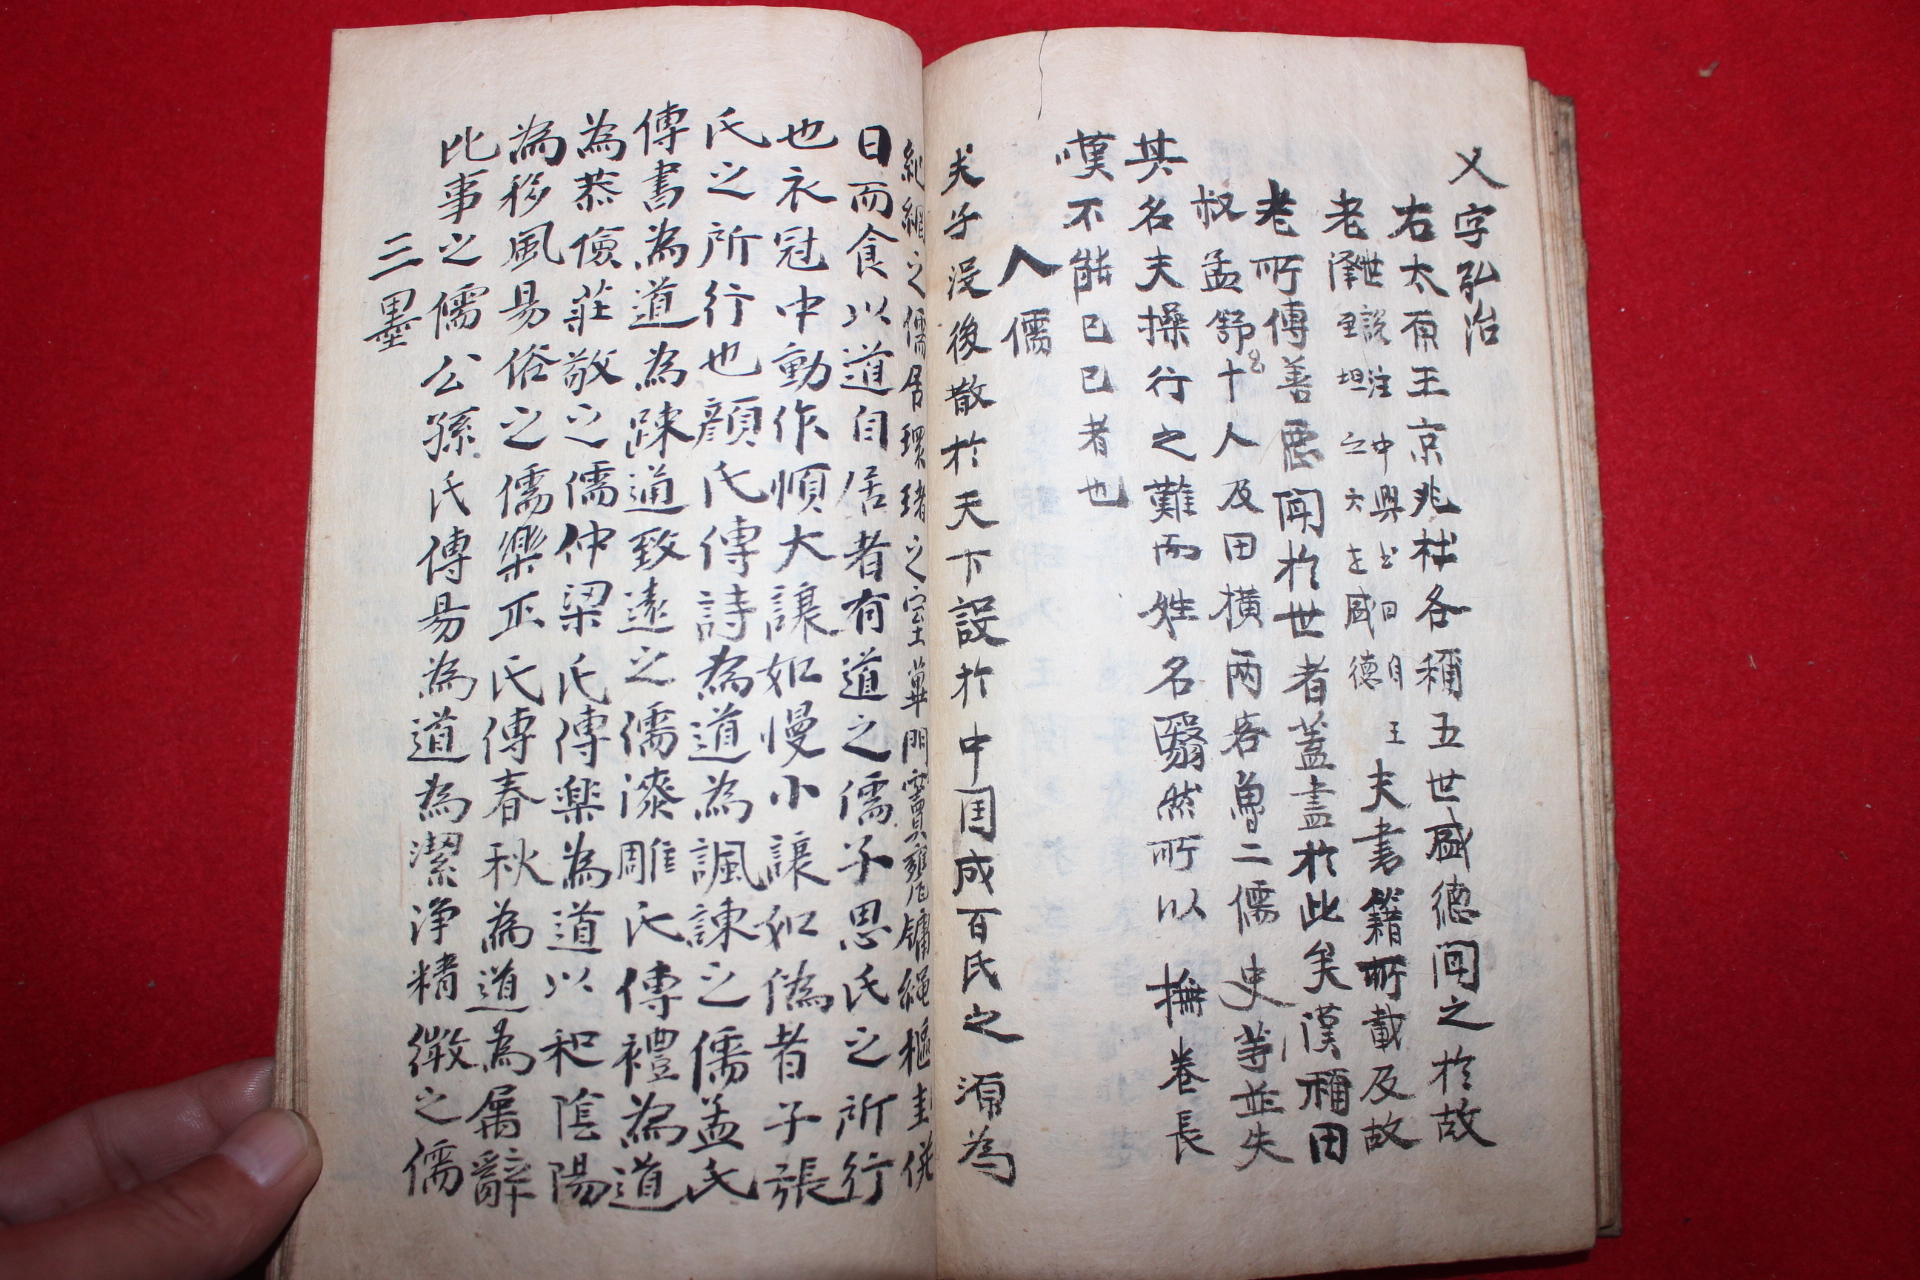 乂字弘治
右太原王京兆杜各稱五世盛德聞之於故
老世說注中興書曰自
澤至坦之六世盛德 王夫書籍所載及故
老所傳善惡聞於世者蓋盡於此矣漢稱田
叔孟舒等十人及田橫兩客魯二儒史等並失
其名夫操行之難而姓名翳然所以撫卷長
嘆不能已已者也
八儒
夫子沒後散於天下設於中国成百氏之源為
紀綱之儒居環堵之室蓽門竇雍牖繩樞圭倂
日而食以道自居者有道之儒子思氏之所行
也衣冠中動作順大讓如慢小讓如僞者子張
氏之所行也顔氏傳詩為道為諷諫之儒孟氏
傳書為道為踈通致遠之儒漆雕氏傳禮為道
為恭儉莊敬之儒仲梁氏傳楽為道以和陰陽
為移風昜俗之儒樂正氏傳春秋為道為属辭
比事之儒公孫氏傳昜為道為潔浄精微之儒
三墨